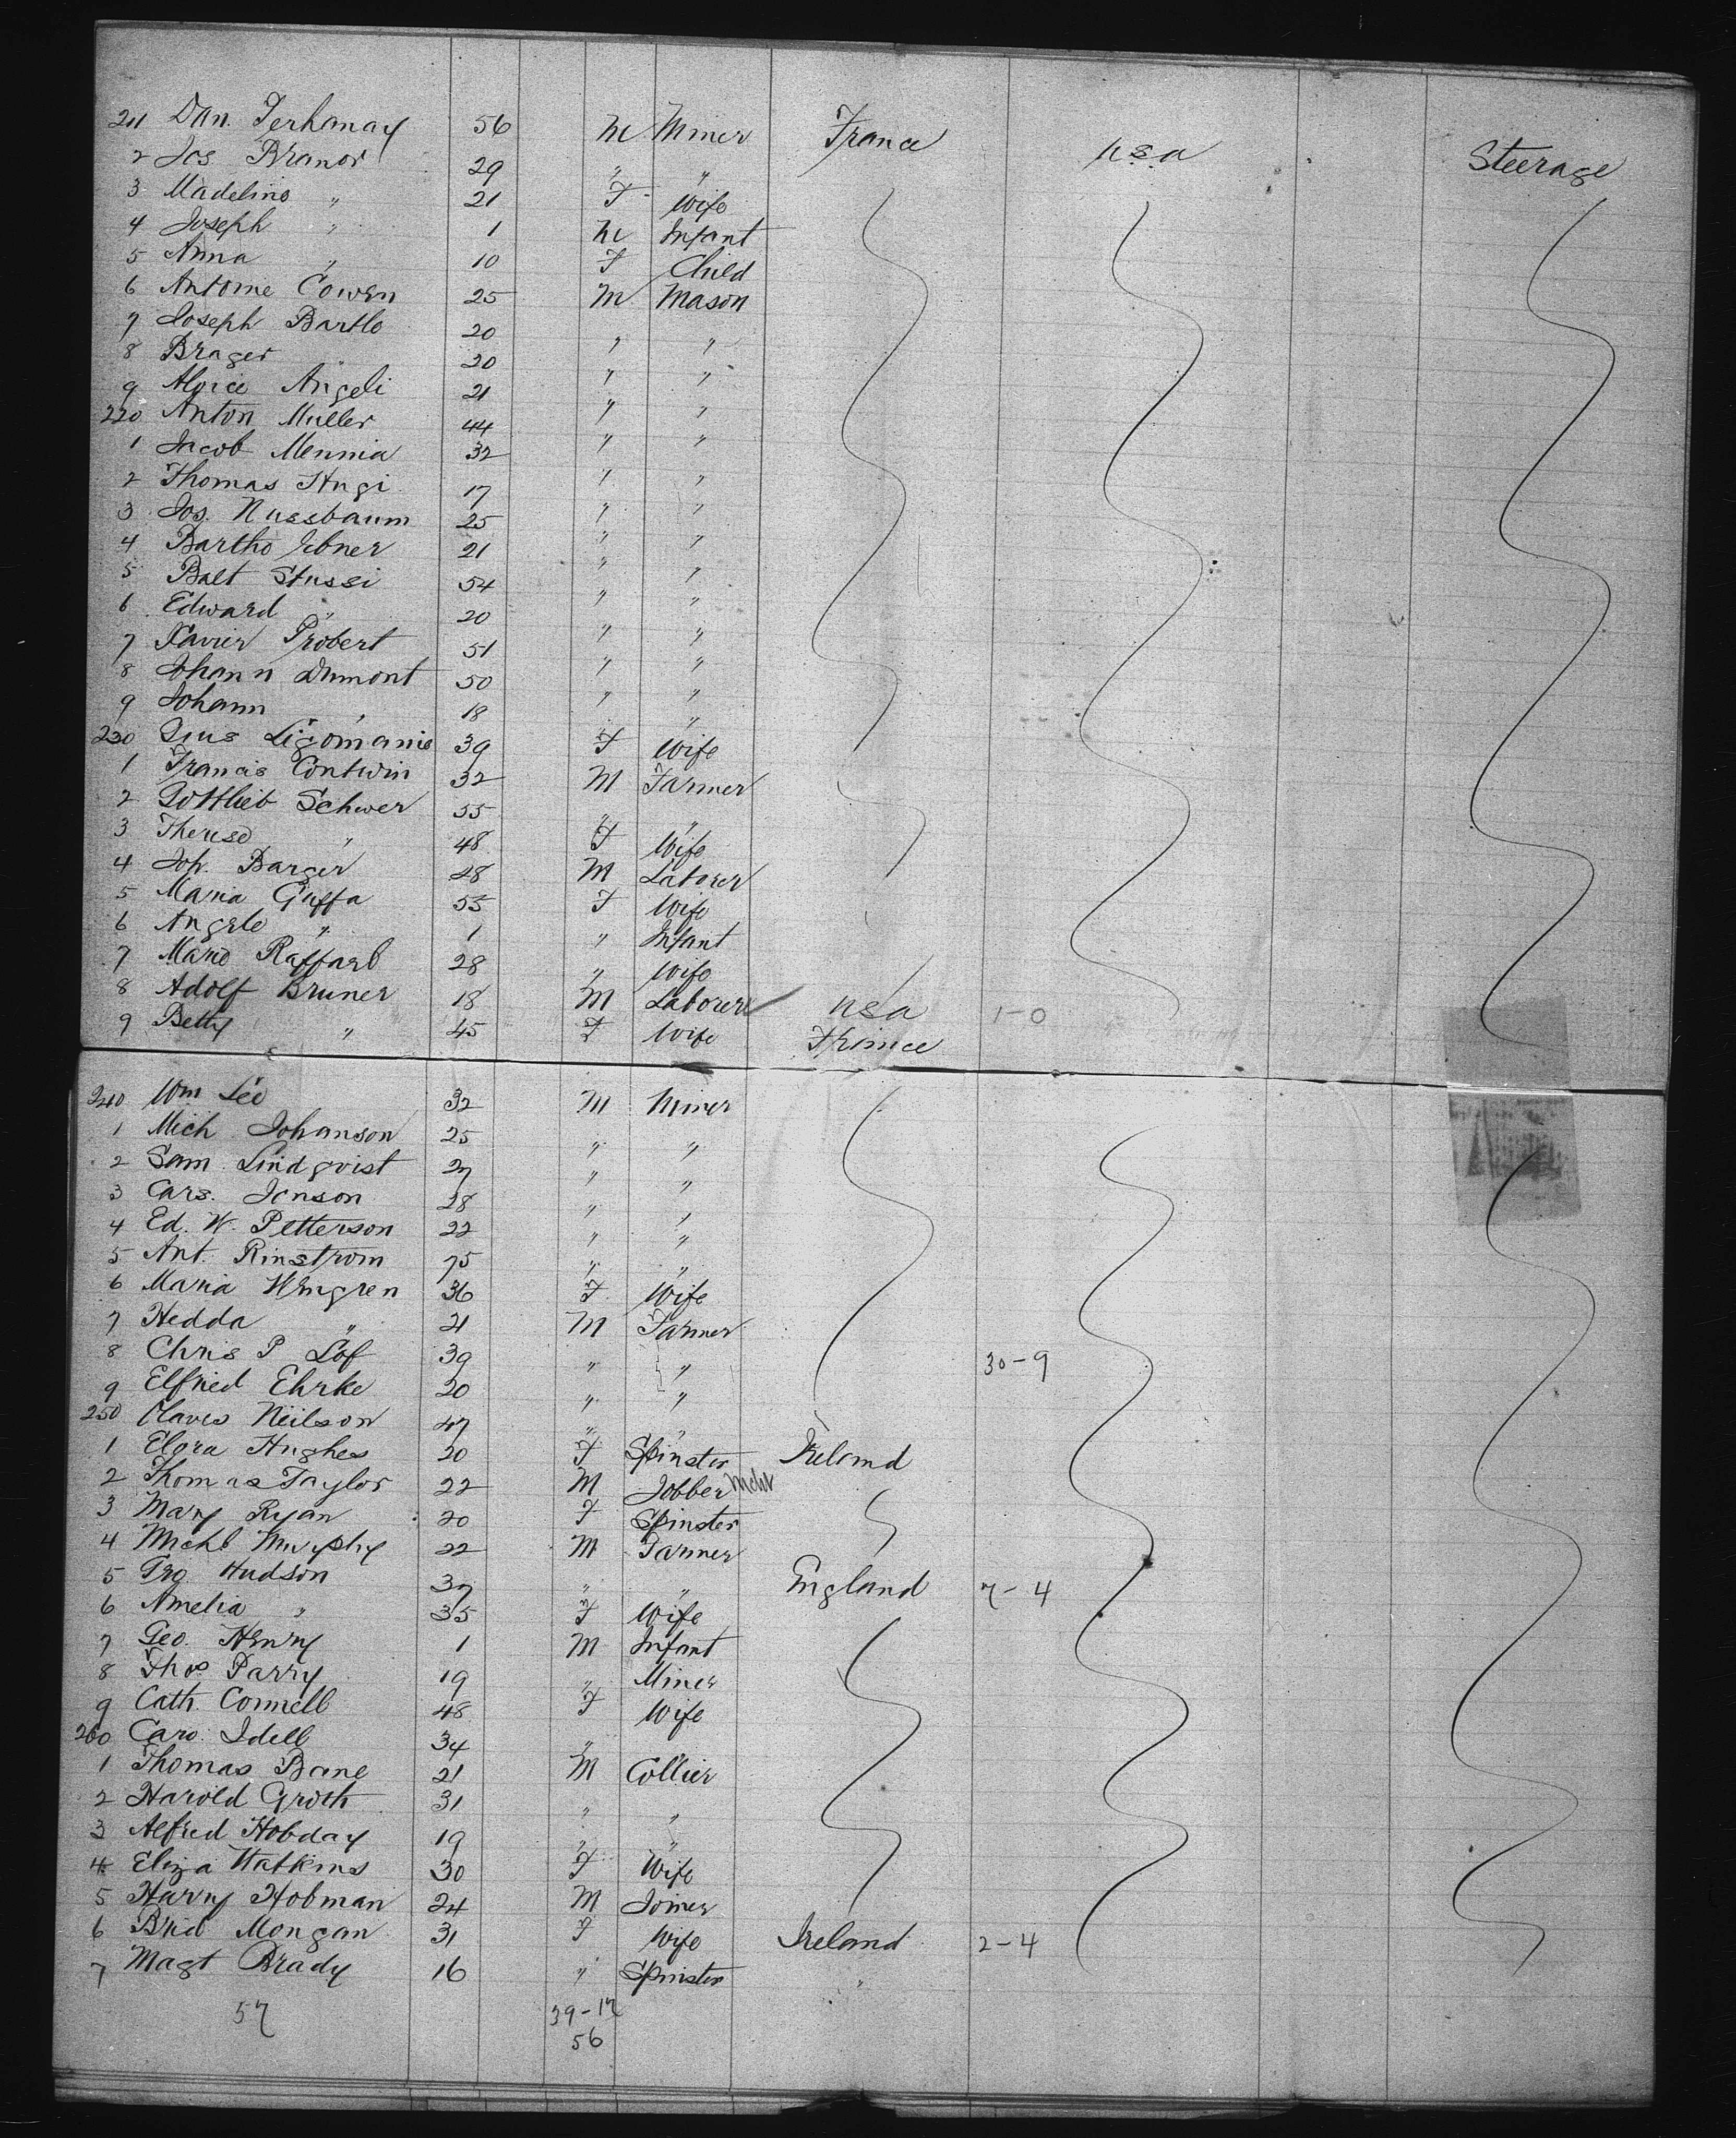 211 Dan. Terhanay 56 M Miner France U.S.a Steerage
2 Jos Branor 29 " "
3 Madeline " 21 F Wife
4 Joseph " 1 M Infant
5 Anna " 10 F Child
6 Antoine Cowen 25 M Mason
7 Joseph Bartlo 20 " "
8 Brager 20 " "
9 Aloice Angeli 21 " "
220 Anton Muller 44 " "
1 Jacob Mennia 32 " "
2 Thomas Hugi 17 " "
3 Jos. Nussbaum 25 " "
4 Bartho Ebner 21 " "
5 Balt Stussi 54 " "
6 Edward " 20 " "
7 Xavier Probert 51 " "
8 Johann Dumont 50 " "
9 Johann " 18 " "
230 Ligomanie 39 F Wife
1 Francis Contwin 32 M Farmer
2 Gottlieb Schwer 55 " "
3 Therese " 48 F Wife
4 Joh. Barger 28 M Laborer
5 Maria Guffa 55 F Wife
6 Angele " 1 " Infant
7 Marie Raffarb 28 " Wife
8 Adolf Bruner 18 M Laborer USa 1-0
9 Betty " 45 F Wife France
240 Wm Leo 32 M Miner
1 Mich Johanson 25 " "
2 Sam Lindqvist 27 " "
3 Cars. Jonson 28 " "
4 Ed. W. Petterson 22 " "
5 Ant. Rinstrom 75 " "
6 Maria Wengren 36 F Wife
7 Hedda " 21 M Farmer
8 Chris P Lof 39 " " 30-9
9 Elfried Ehrke 20 " "
250 Olaves Neilson 47 " "
1 Elora Hughes 20 F Spinster Ireland
2 Thomas Taylor 22 M Jobber
3 Mary Ryan 20 F Spinster
4 Michl Murphy 22 M Farmer
5 Geo Hudson 37 " " England 7-4
6 Amelia " 35 F Wife
7 Geo. Henry 1 M Infant
8 Thos Parry 19 " Miner
9 Cath. Connell 48 F Wife
260 Caro. Idell 34 " "
1 Thomas Bane 21 M Collier
2 Harold Groth 31 " "
3 Alfred Hobday 19 " "
4 Eliza Watkins 30 F Wife
5 Harry Hobman 24 M Joiner
6 Brid Mongan 31 F Wife Ireland 2-4
7 Magt Brady 16 " Spinster "
57 39-17
56